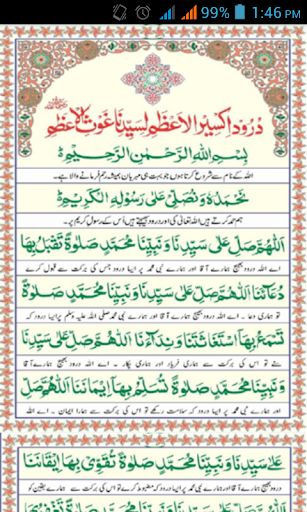 99% 1:46 PM
درود اکسیر الاعظم لسیدنا غوث الاعظم
بِسْمِ اللهِ الرَّحْمٰنِ الرَّحِيْمِ
اللہ کے نام سے شروع کرتا ہوں جو بہت ہی مہربان ہمیشہ رحم فرمانے والا ہے۔
نَحْمَدُهٗ وَنُصَلِّیْ عَلٰى رَسُوْلِهِ الْكَرِيْمِ
ہم حمد کرتے ہیں اللہ تعالیٰ کی اور درود بھیجتے ہیں اُس کے رسول کریم پر۔
اَللّٰهُمَّ صَلِّ عَلٰى سَيِّدِنَا وَنَبِيِّنَا مُحَمَّدٍ صَلٰوةً تَقْبَلُ بِهَا
اے اللہ درود بھیج ہمارے آقا اور ہمارے نبی محمد پر ایسا درود جس کی برکت سے قبول کرے
دُعَآئَنَا اَللّٰهُمَّ صَلِّ عَلٰى سَيِّدِنَا وَنَبِيِّنَا مُحَمَّدٍ صَلٰوةً
تو ہماری دعا۔ اے اللہ درود بھیج ہمارے آقا اور ہمارے نبی محمد صلی اللہ علیہ وسلم پر ایسا درود کہ
تَسْمَعُ بِهَا اسْتِغَاثَتَنَا وَنِدَآءَنَا اَللّٰهُمَّ صَلِّ عَلٰى سَيِّدِنَا
سنے تو اس کی برکت سے ہماری فریاد اور ہماری پکار۔ اے اللہ درود بھیج ہمارے آقا
وَنَبِيِّنَا مُحَمَّدٍ صَلٰوةً تُسَلِّمُ بِهَا اِيْمَانَنَا اَللّٰهُمَّ صَلِّ
اور ہمارے نبی محمد پر ایسا درود کہ سلامت رکھے تو اس کی برکت سے ہمارا ایمان۔ اے اللہ
عَلٰى سَيِّدِنَا وَنَبِيِّنَا مُحَمَّدٍ صَلٰوةً تُقَوِّیْ بِهَا اِيْقَانَنَا
درود بھیج ہمارے آقا اور ہمارے نبی محمد پر ایسا درود کہ مضبوط کرے تو اس کی برکت سے ہمارے یقین کو
اَللّٰهُمَّ صَلِّ عَلٰى سَيِّدِنَا وَنَبِيِّنَا مُحَمَّدٍ صَلٰوةً